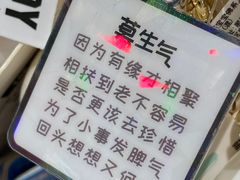 莫生气
因为有缘才相聚
相扶到老不容易
是否更该去珍惜
为了小事发脾气
回头想想又何